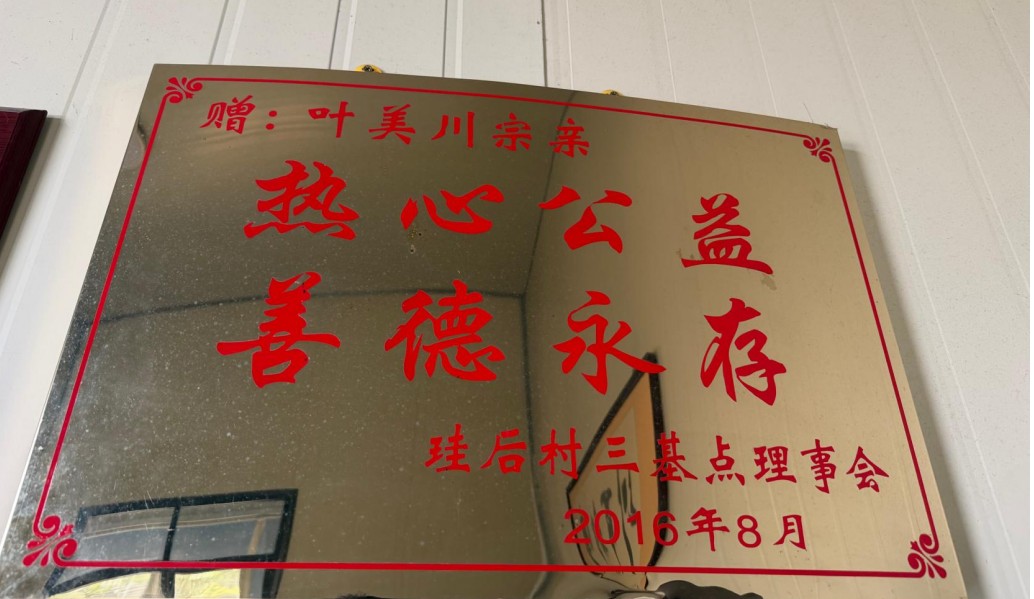 赠：叶美川宗亲
热心公益
善德永存
珪后村三基点理事会
2016年8月